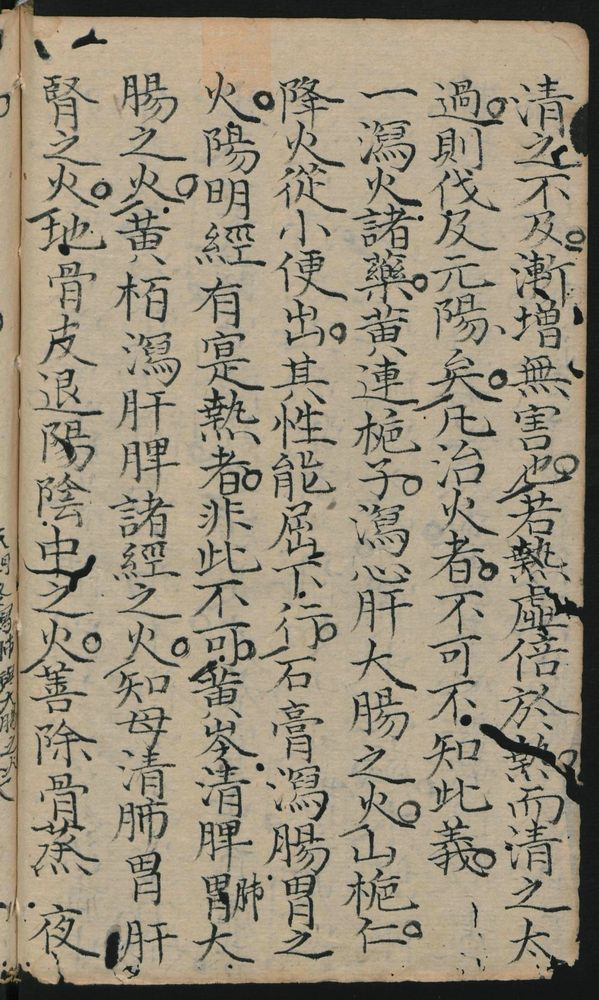 清之不及。漸增無害也。若熱虛倍於熱。而清之太
過。則伐及元陽矣。凡治火者。不可不知此義。
一瀉火諸藥。黃連梔子。瀉心肝大腸之火。山梔仁。
降火從小便出。其性能屈下行。石膏瀉腸胃之
火。陽明經有寔熱者。非此不可。黃芩清脾胃肺大
腸之火。黃栢瀉肝脾諸經之火。知母清肺胃肝
腎之火。地骨皮退陽陰中之火。善除骨蒸 夜